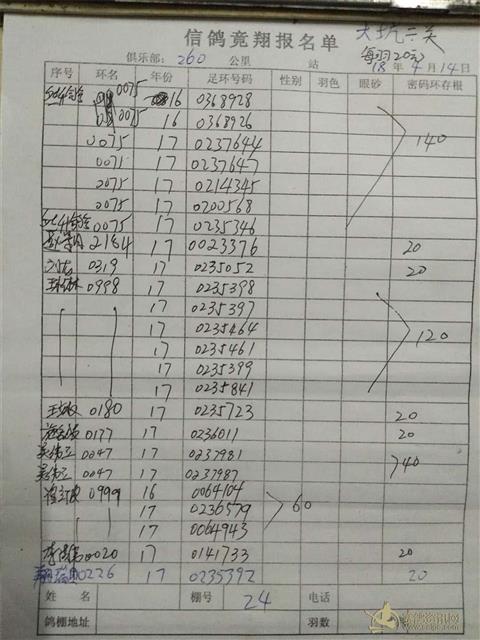 信鸽竟翔报名单 大坑二关
俱乐部: 260 公里 站 每羽20元
18 年 4 月 14 日
序号 环名 年份 足环号码 性别 羽色 眼砂 密码环存根
0075 16 0368928
0075 16 0368926
0075 17 0237644 140
0075 17 0237647
0075 17 0214345
0075 17 0200568
0075 17 0235346
2184 17 0023376 20
0319 17 0235052 20
0998 17 0235398
17 0235397
17 0235464 120
17 0235461
17 0235399
17 0235841
0180 17 0235723 20
0177 17 0236011 20
0047 17 0237981
0047 17 0237987 40
0999 16 0064104
17 0236579 60
17 0064943
0020 17 0141733 20
0226 17 0235392 20
姓名 棚号 24 电话
鸽棚地址 羽数